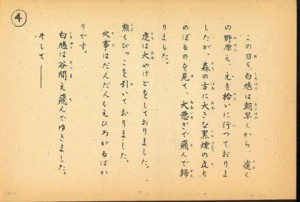 ④
この日も白鳩は朝早くから、遠く
の野原え、えを拾いに行つておりま
したが、森の方に大きな黒煙の立ち
のぼるのを見て、大急ぎで飛んで帰
りました。
虎は大やけどをしておりました。
熊もびっこを引いておりました。
火事はだんだんもえひろがるばか
りです。
白鳩は谷間え飛んでゆきました。
そして――